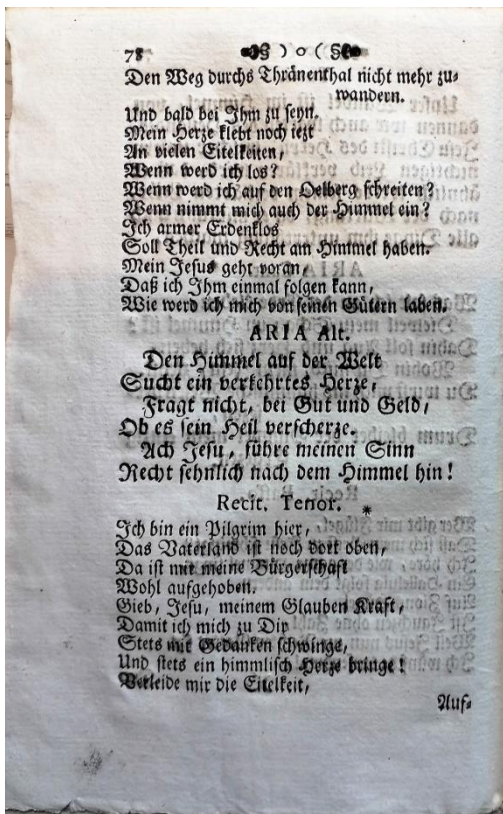 78
Den Weg durchs Thränenthal nicht mehr zu-
wandern.
Und bald bei Ihm zu seyn.
Mein Herze klebt noch iezt
An vielen Eitelkeiten,
Wenn werd ich los?
Wenn werd ich auf den Oelberg schreiten?
Wenn nimmt mich auch der Himmel ein?
Ich armer Erdenklos
Soll Theil und Recht am Himmel haben.
Mein Jesus geht voran,
Daß ich Ihm einmal folgen kann,
Wie werd ich mich von seinen Gütern laben.
ARIA Alt.
Den Himmel auf der Welt
Sucht ein verkehrtes Herze,
Fragt nicht, bei Gut und Geld,
Ob es sein Heil verscherze.
Ach Jesu, führe meinen Sinn
Recht sehnlich nach dem Himmel hin!
Recit. Tenor. *
Ich bin ein Pilgrim hier,
Das Vaterland ist noch dort oben,
Da ist mir meine Bürgerschaft
Wohl aufgehoben.
Gieb, Jesu, meinem Glauben Kraft,
Damit ich mich zu Dir
Stets mit Gedanken schwinge,
Und stets ein himmlisch Herze bringe!
Verleide mir die Eitelkeit,
Auf-